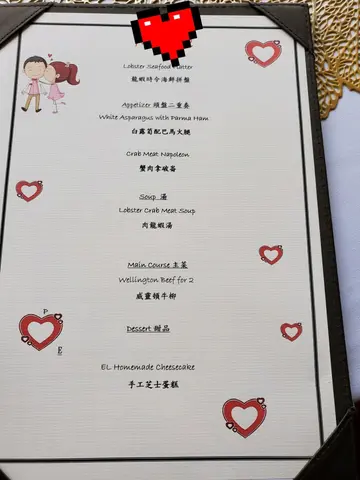 Lobster Seafood Platter
龍蝦時令海鮮拼盤
Appetizer 頭盤二重奏
White Asparagus with Parma Ham
白露荀配巴馬火腿
Crab Meat Napoleon
蟹肉拿破崙
Soup 湯
Lobster Crab Meat Soup
肉龍蝦湯
Main Course 主菜
Wellington Beef for 2
威靈頓牛柳
Dessert 甜品
EL Homemade Cheesecake
手工芝士蛋糕
P
E